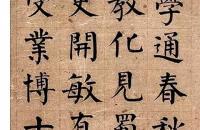 學通春秋
教化見蜀
吏開敏有
受業博士